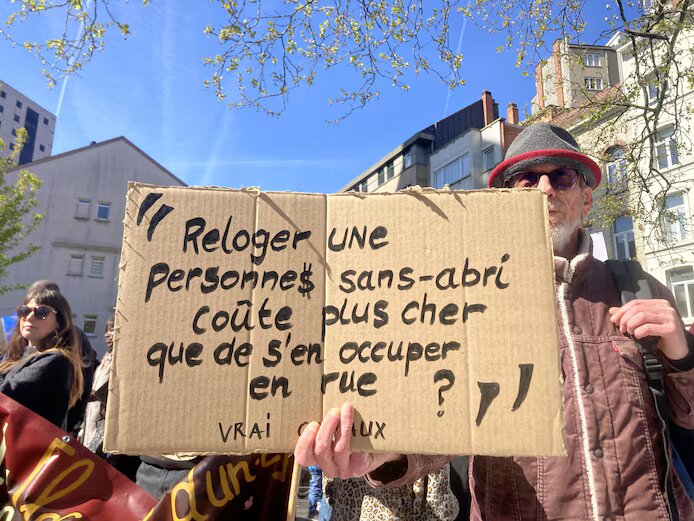 " Reloger une
personne$ sans-abri
coûte plus cher
que de s'en occuper
en rue ? "
VRAI
d'un